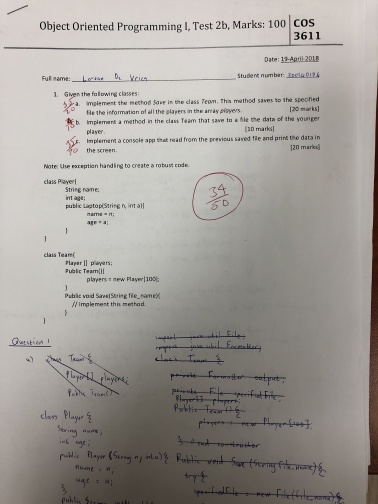 Object Oriented Programming I, Test 2b, Marks: 100
COS 3611
Date: 19-April-2018
Full name: De Student number:
1. Given the following classes:
a. Implement the method Save in the class Team. This method saves to the specified
file the information of all the players in the array players. [20 marks]
b. Implement a method in the class Team that save to a file the data of the younger
player. [10 marks]
c. Implement a console app that read from the previous saved file and print the data in
the screen. [20 marks]
Note: Use exception handling to create a robust code.
34
50
class Player{
String name;
int age;
public Laptop(String n, int a){
name = n;
age = a;
}
}
class Team{
Player [] players;
Public Team(){
players = new Player[100];
}
Public void Save(String file_name){
// Implement this method.
}
}
Question 1
a) class Team {
Player[] players;
Public Team()
class Player {
String name;
int age;
public Player (String n, int a) {
name = n;
age = a;
}
import java.util.File;
import java.util.Formatter;
class Team {
private Formatter output;
private File specifiedFile;
Player[] players;
Public Team() {
players = new Player[100];
} // end constructor
Public void Save (String file_name) {
try {
specifiedFile = new File(file_name);